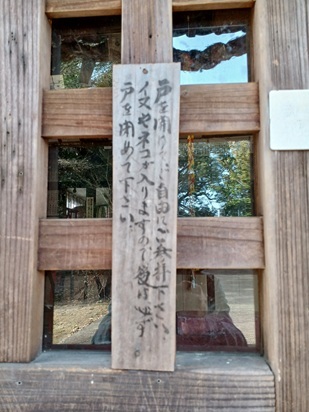 戸を開けて、ご自由にご参拝下さい。
イヌやネコが入りますので後は必ず
戸を閉めて下さい。